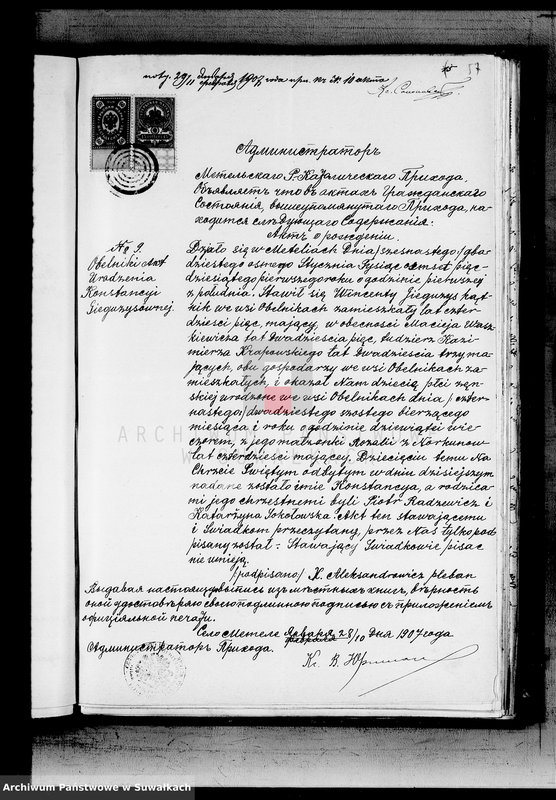 29/11 1907 года при № 10 акта
57
Администраторъ
Метельскаго Р-Католическаго Прихода,
Объявляетъ что въ актахъ Гражданскаго
Состоянія, вышеупомянутаго Прихода, на-
ходится слѣдующаго Содержанія:
Актъ о рожденіи.
№ 9.
Obelniki Akt
Urodzenia
Konstancyi
Działo się w Meteliach Dnia szesnastego/dwa-
dziestego osmego Stycznia Tysiąc ośmset pięć-
dziesiątego pierwszego roku o godzinie pierwszej
z południa. Stawił się Wincenty
we wsi Obelnikach zamieszkały lat czter-
dzieści pięć, mający, w obecności Macieja Wasz-
kiewicza lat dwadzieścia pięć, tudzież Kazi-
mierza Krapowskiego lat dwadzieścia trzy ma-
jących, obu gospodarzy we wsi Obelnikach za-
mieszkałych, i okazał Nam dziecię płci żeń-
skiej urodzone we wsi Obelnikach dnia /czter-
nastego/ dwadziestego szostego bierzącego
miesiąca i roku o godzinie dziewiątej wie-
czorem, z jego małżonki Rozalii z Korkunow
lat czterdzieści mającej. Dziecięciu temu Na
Chrzcie Świętym odbytym w dniu dzisiejszym
nadane zostało imie Konstancya, a rodzica-
mi jego chrzestnemi byli Piotr Radzewicz i
Katarżyna Sokołowska. Akt ten stawającemu
i Świadkom przeczytany, przez Nas tylko pod-
pisany został: Stawający Świadkowie pisać
nie umieją.
/podpisano/ X. Aleksandrowicz pleban
Выдавая настоящую выпись изъ мѣстныхъ книгъ, вѣрность
оной удостовѣряю своею подлинною подписью съ приложеніемъ
оффиціяльной печати.
Село Метеле Января 28/10 Дня 1907 года
Администраторъ Прихода.
Кс. В.
ARCH
W
Archiwum Państwowe w Suwałkach